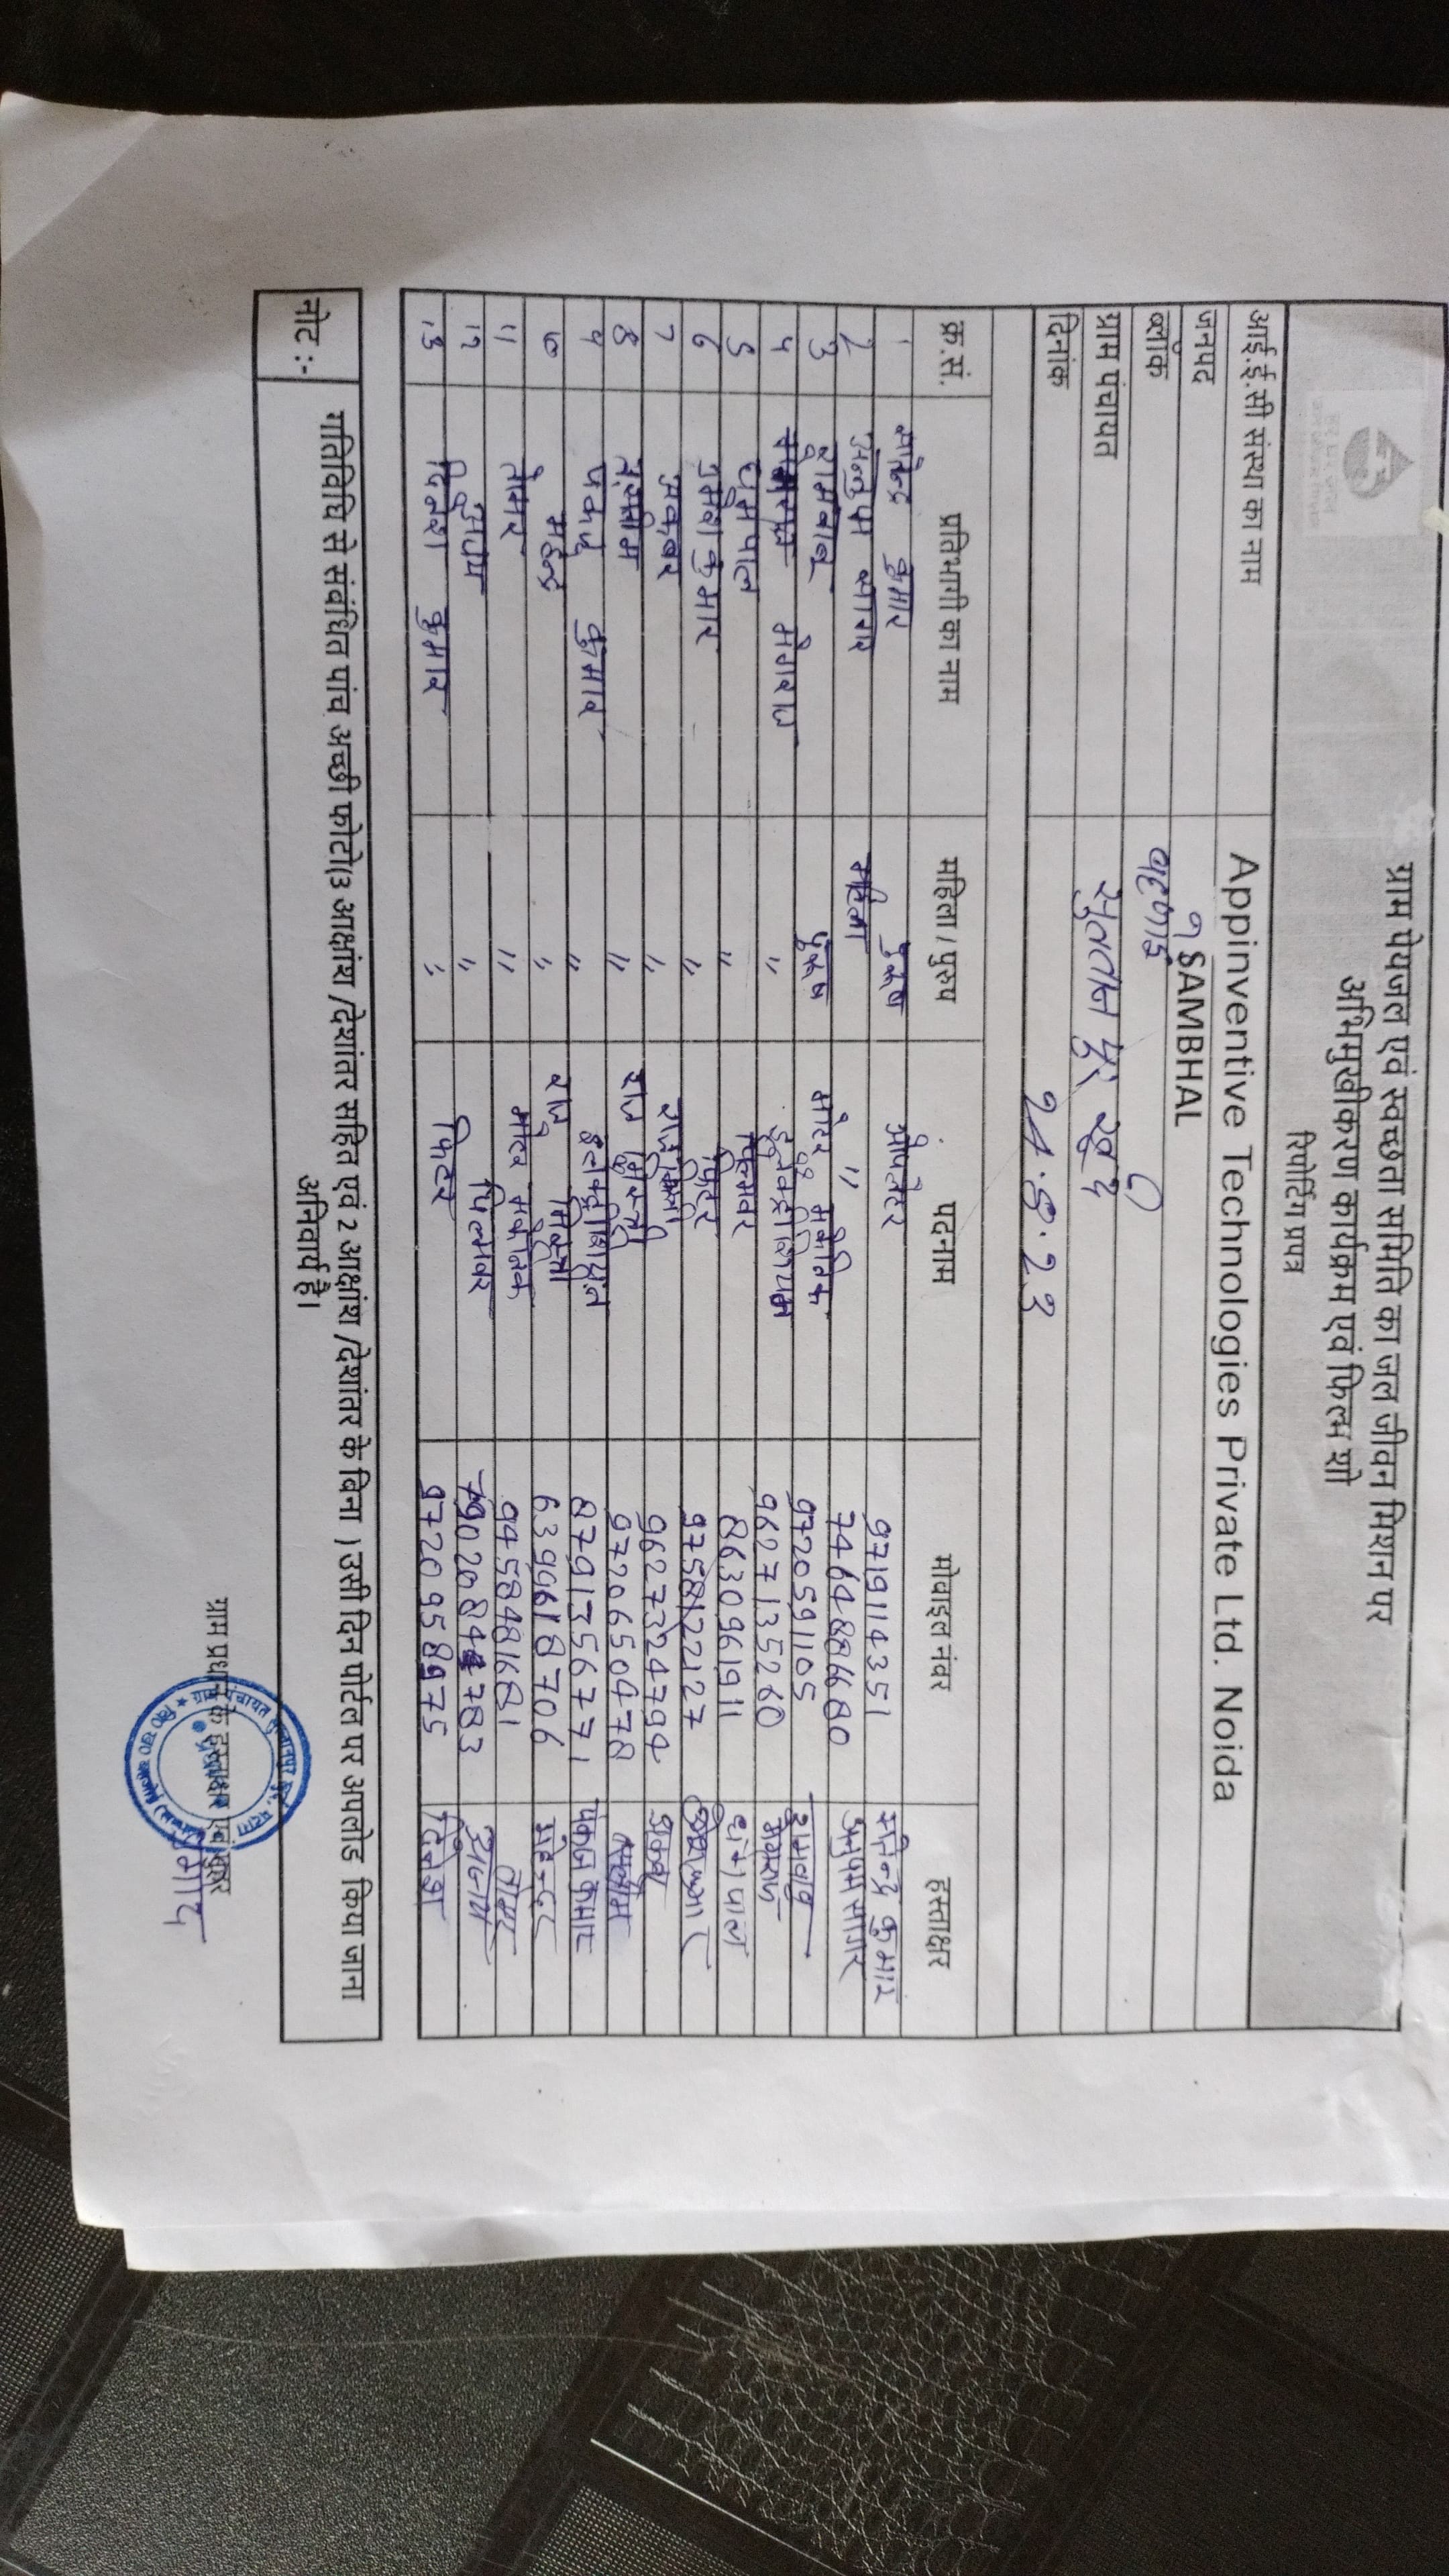 ग्राम पेयजल एवं स्वच्छता समिति का जल जीवन मिशन पर
अभिमुखीकरण कार्यक्रम एवं फिल्म शो
रिपोर्टिंग प्रपत्र
आई.ई.सी संस्था का नाम Appinventive Technologies Private Ltd. Noida
जनपद SAMBHAL
ब्लॉक
ग्राम पंचायत सुलतान पुर खुर्द
दिनांक 24.8.23
क्र.सं. प्रतिभागी का नाम महिला / पुरुष पदनाम मोबाइल नंबर हस्ताक्षर
1 कुमार पुरूष ओपरेटर 9719114351 कुमार
2 अनुपम सागर महिला " 7464886680 अनुपम सागर
3 रामबाबू पुरूष मोटर मकेनिक 9720591105 रामबाबू
4 मेघराज " इलेक्ट्रीशियन 9627135260 मेघराज
5 धर्मपाल " फिल्मवर 8630961911 पाल
6 कुमार " फिटर 9758122127
7 " राजमिस्त्री 9627324794
8 " राज मिस्त्री 9720650478
9 पंकज कुमार " इलेक्ट्रीशियन 8791356771 पंकज कुमार
10 महेन्द्र " राज मिस्त्री 6399618706
11 तोमर " मोटर मकेनिक 9458481681 तोमर
12 " फिल्मवर 783
13 दिनेश कुमार " फिटर 9720958975 दिनेश
नोट :- गतिविधि से संबंधित पांच अच्छी फोटो(3 आक्षांश /देशांतर सहित एवं 2 आक्षांश /देशांतर के बिना ) उसी दिन पोर्टल पर अपलोड किया जाना
अनिवार्य है।
ग्राम प्रधान के हस्ताक्षर एवं मुहर